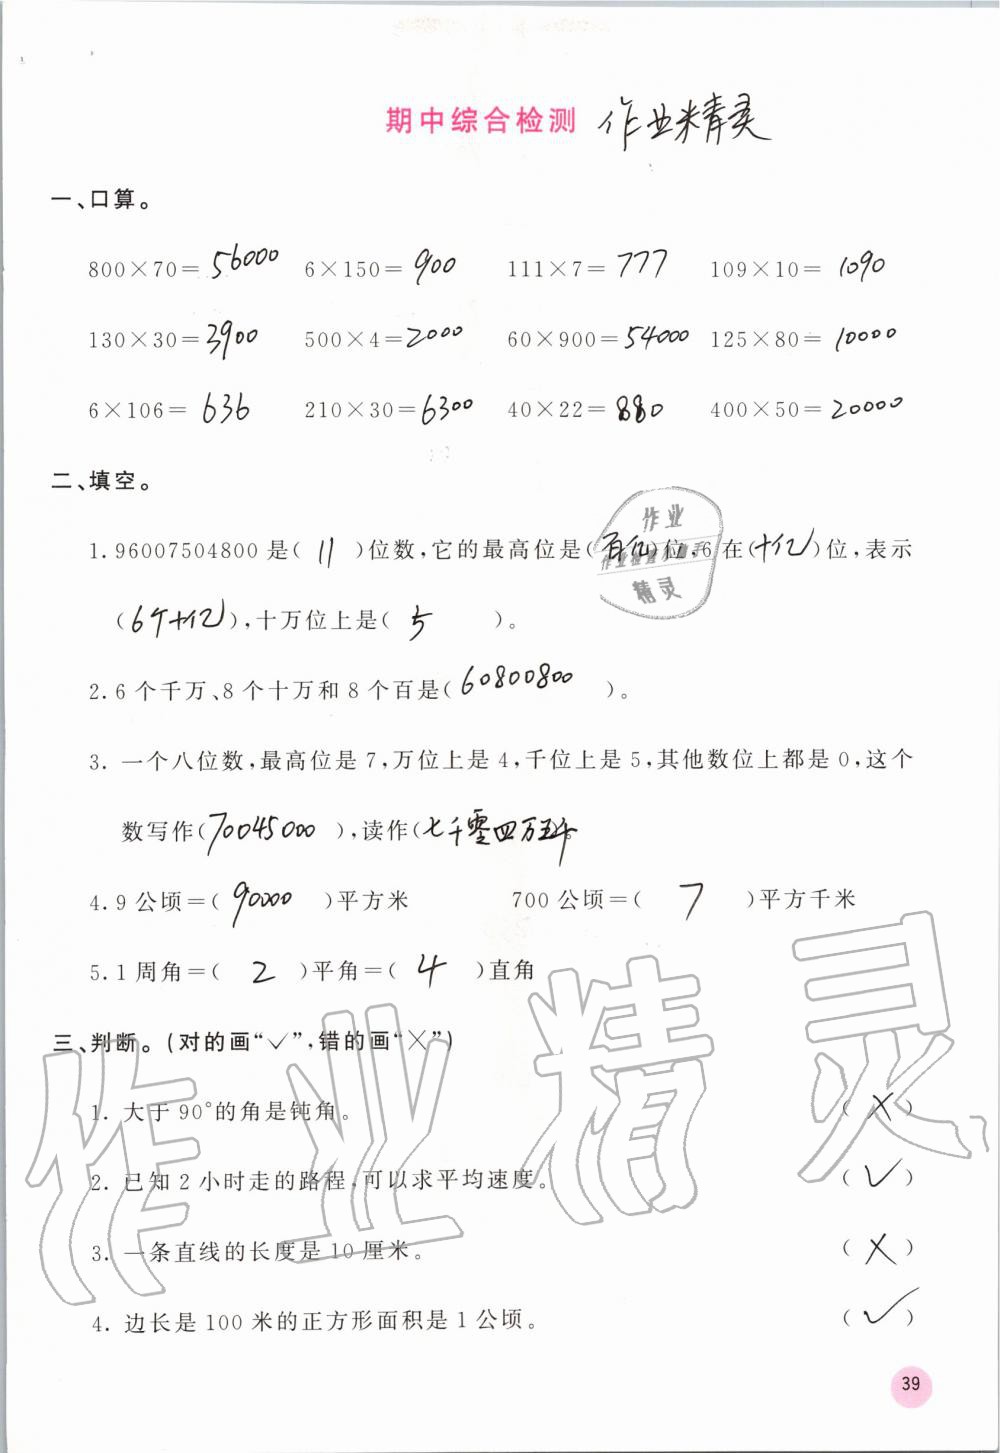 期中综合检测 作业精灵
一、口算。
800×70=56000 6×150=900 111×7=777 109×10=1090
130×30=3900 500×4=2000 60×900=54000 125×80=10000
6×106=636 210×30=6300 40×22=880 400×50=20000
二、填空。
1.96007504800是(11)位数,它的最高位是(百亿)位,6在(十亿)位,表示
(6个十亿),十万位上是(5)。
2.6个千万、8个十万和8个百是(60800800)。
3.一个八位数,最高位是7,万位上是4,千位上是5,其他数位上都是0,这个
数写作(70045000),读作(七千零四万五千)。
4.9公顷=(90000)平方米 700公顷=(7)平方千米
5.1周角=(2)平角=(4)直角
三、判断。(对的画“√”,错的画“×”)
1.大于90°的角是钝角。 (×)
2.已知2小时走的路程,可以求平均速度。 (√)
3.一条直线的长度是10厘米。 (×)
4.边长是100米的正方形面积是1公顷。 (√)
39
作业
精灵
作业精灵